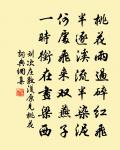 桃花雨過碎紅飛
半逐溪流半染泥
何處飛來雙燕子
一時銜在畫梁西
劉次莊敷淺原見桃花
詞典網集